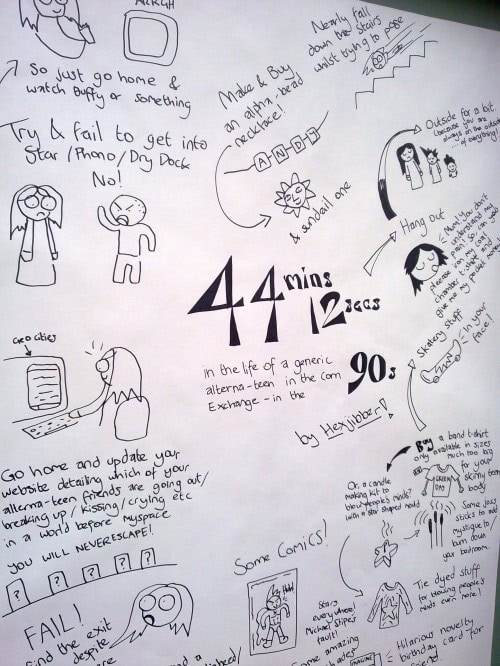 AARGH
So just go home &
watch Buffy or something
Try & fail to get into
Star / Phono / Dry Dock
No!
Make & Buy
an alpha-bead
necklace!
A N D Y
& sundail one
Nearly fall
down the stairs
whilst trying to pose
Outside for a bit
because you are
always on the outside
of everything!
Hang out
Mum! you don't
understand my
pain! So can you
please
give me my
44 mins
12 secs
in the life of a generic
alterna-teen in the Corn
Exchange - in the
90s
by Hexjibber!
Skatery stuff
In your
face!
Geocities
Go home and update your
website detailing which of your
alterna-teen friends are going out/
breaking up / kissing / crying etc
in a world before myspace
YOU WILL NEVER ESCAPE!
? ? ? ? ?
FAIL!
Find the exit
despite
Buy a band t-shirt
only available in sizes
much too big
for your
skinny teen
body
Or, a candle
making kit to
blow people's minds?
(with a star shaped mould)
Some joss
sticks to add
mystique to/
burn down
your bedroom
Some Comics!
Stars
everywhere!
Michael Stipe's
fault!
amazing
Tie dyed stuff
for blowing people's
minds even more!
Hilarious novelty
birthday card for